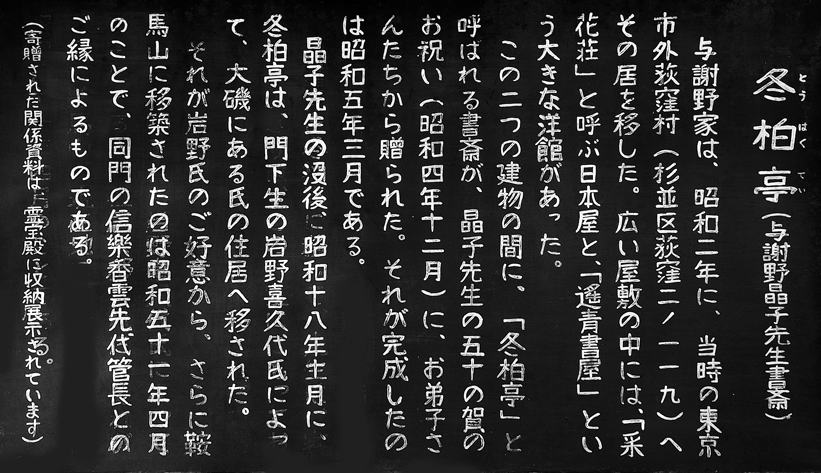 冬柏亭(与謝野晶子先生書斎)
とう はく てい
与謝野家は、昭和二年に、当時の東京
市外荻窪村(杉並区荻窪二ノ一一九)へ
その居を移した。広い屋敷の中には、「采
花荘」と呼ぶ日本屋と、「遙青書屋」とい
う大きな洋館があった。
この二つの建物の間に、「冬柏亭」と
呼ばれる書斎が、晶子先生の五十の賀の
お祝い(昭和四年十二月)に、お弟子さ
んたちから贈られた。それが完成したの
は昭和五年三月である。
晶子先生の没後、昭和十八年
冬柏亭は、門下生の岩野喜久代氏によっ
て、大磯にある氏の住居へ移された。
それが岩野氏のご好意から、さらに鞍
馬山に移築されたのは昭和五十一年四月
のことで、同門の信樂香雲先代管長との
ご縁によるものである。
(寄贈された関係資料は、霊宝殿に収納展示されています)